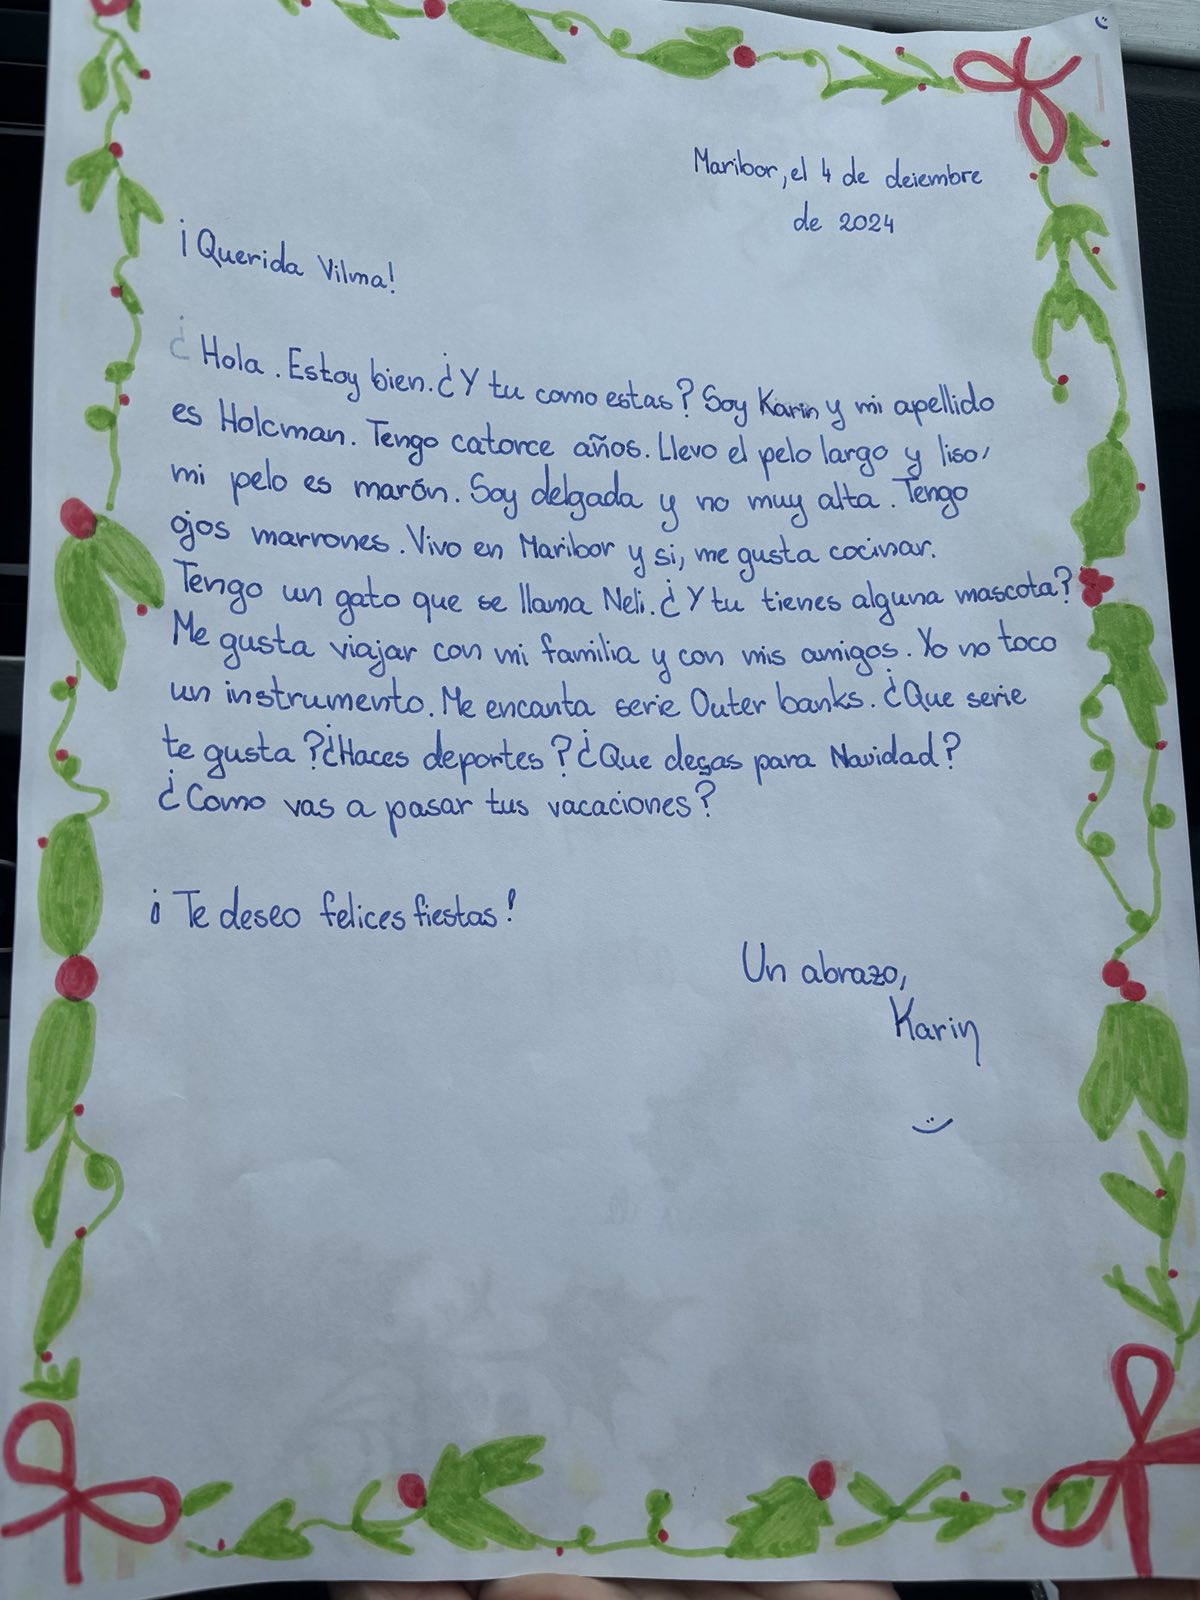 Maribor, el 4 de deiembre
de 2024
¡Querida Vilma!
¿ Hola. Estoy bien. ¿Y tu como estas? Soy Karin y mi apellido
es Holcman. Tengo catorce años. Llevo el pelo largo y liso,
mi pelo es marón. Soy delgada y no muy alta. Tengo
ojos marrones. Vivo en Maribor y si, me gusta cocinar.
Tengo un gato que se llama Neli. ¿Y tu tienes alguna mascota?
Me gusta viajar con mi familia y con mis amigos. Yo no toco
un instrumento. Me encanta serie Outer banks. ¿Que serie
te gusta? ¿Haces deportes? ¿Que deças para Navidad?
¿Como vas a pasar tus vacaciones?
¡Te deseo felices fiestas!
Un abrazo,
Karin